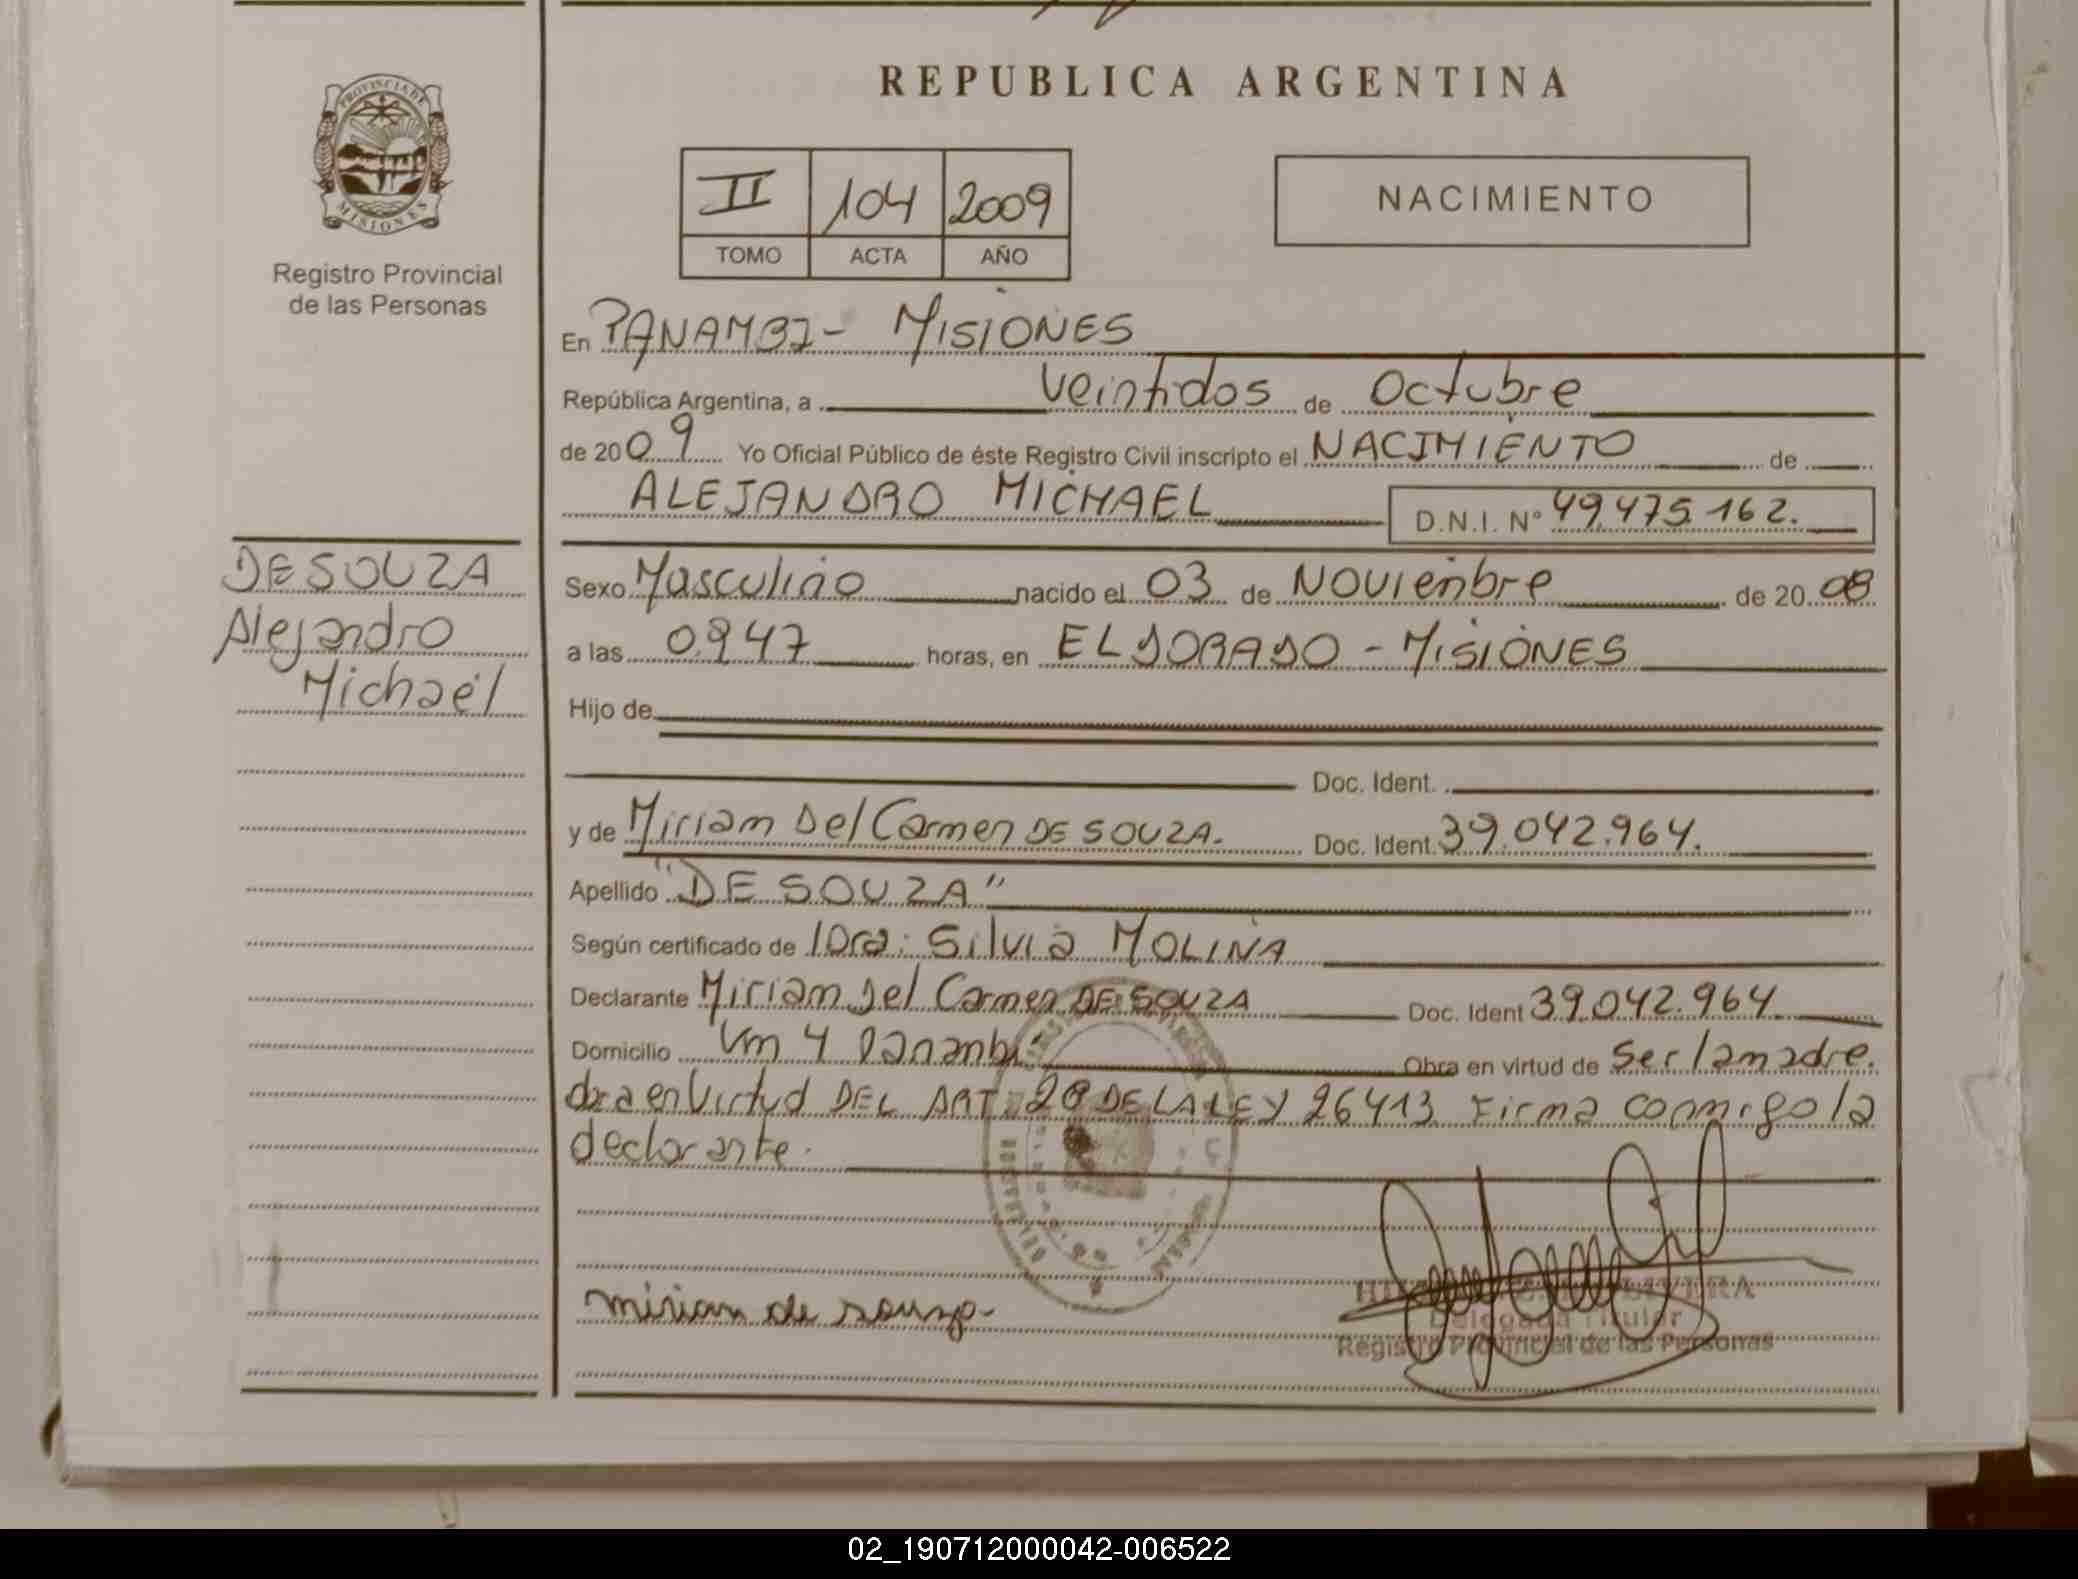 REPUBLICA ARGENTINA
PROVINCIA DE MISIONES
Registro Provincial
de las Personas
II 104 2009
TOMO ACTA AÑO
NACIMIENTO
En PANAMBI - MISIONES
República Argentina, a veintidos de Octubre
de 2009 Yo Oficial Público de éste Registro Civil inscripto el NACIMIENTO de
ALEJANDRO MICHAEL D.N.I. N° 49.475.162.
DE SOUZA
Alejandro
Michael
Sexo Masculino nacido el 03 de NOViembre de 2008
a las 0947 horas, en ELDORADO - MISIONES
Hijo de
Doc. Ident.
y de Miriam Del Carmen DE SOUZA. Doc. Ident. 39.042.964.
Apellido "DE SOUZA"
Según certificado de Dra: Silvia MOLINA
Declarante Miriam Del Carmen DE SOUZA Doc. Ident 39.042.964
Domicilio Km 4 Panambi Obra en virtud de Ser la madre.
obra en Virtud DEL ART. 28 DE LA LEY 26413 Firma conmigo la
declarante.
miriam de souza
Delegada Titular
Registro Provincial de las Personas
02_190712000042-006522